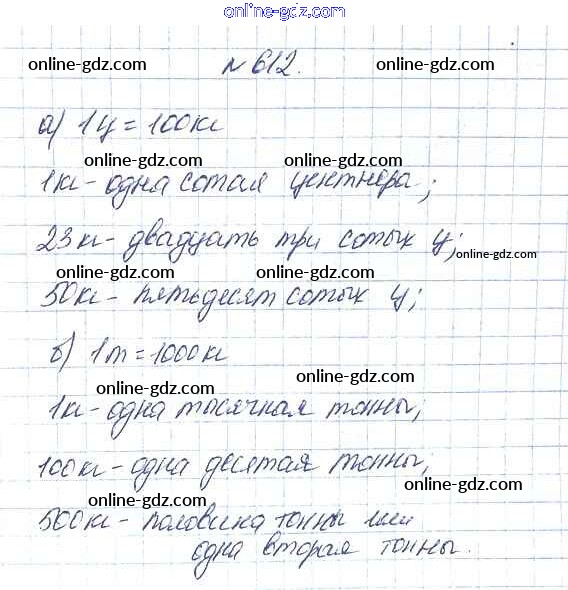 online-gdz.com
online-gdz.com online-gdz.com
№ 612.
а) 1ц = 100кг
online-gdz.com online-gdz.com
1кг - одна сотая центнера;
23кг - двадцать три сотых ц;
online-gdz.com
online-gdz.com online-gdz.com
50кг - пятьдесят сотых ц;
б) 1т = 1000кг
online-gdz.com
online-gdz.com
1кг - одна тысячная тонны;
100кг - одна десятая тонны;
online-gdz.com online-gdz.com
500кг - половина тонны или
одна вторая тонны.